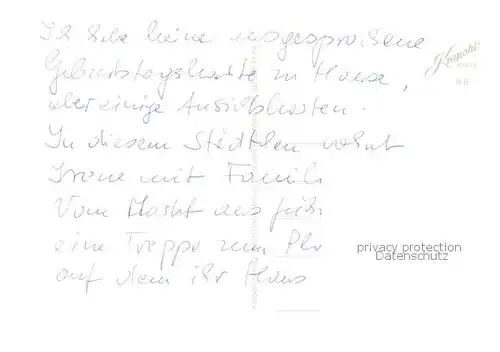 Ich habe keine ausgesprochene
Geburtstagskarte zu Hause,
aber einige Ansichtskarten.
In diesem Städtchen wohnt
Irene mit Famili
Vom Markt aus füh
eine Treppe zum Pl
auf dem ihr Haus
Krapohl
privacy protection
Datenschutz